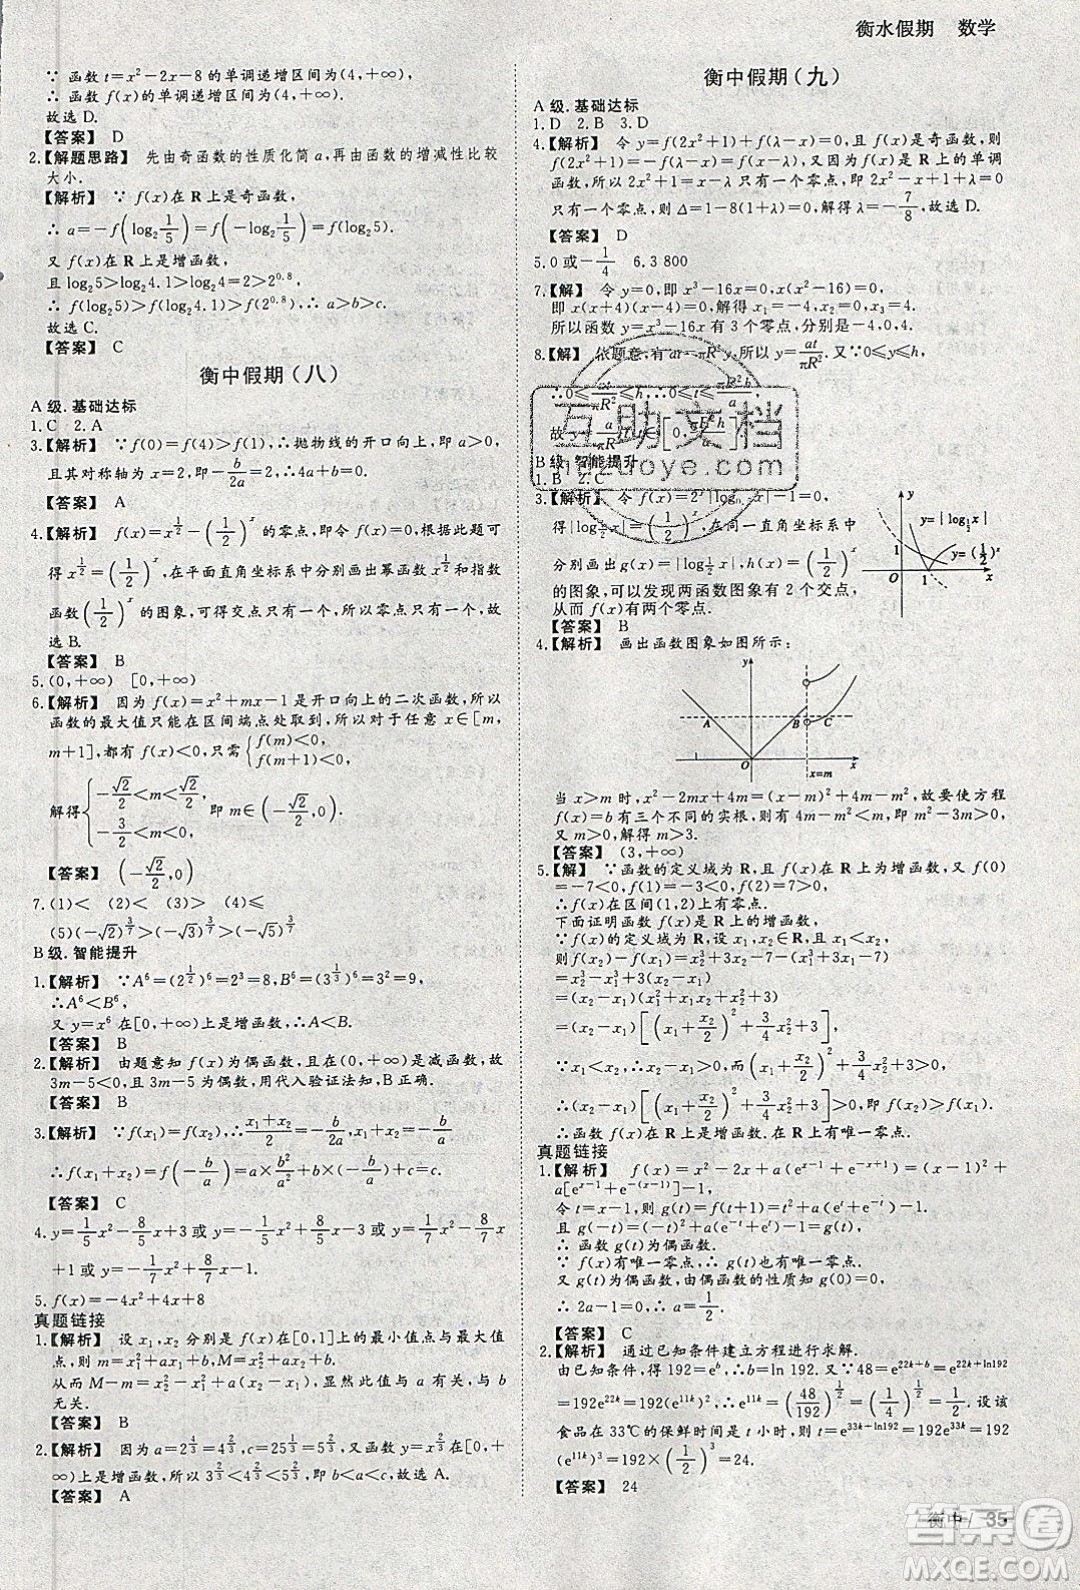 衡水假期 数学
∵ 函数 t=x²−2x−8 的单调递增区间为(4,+∞),
∴ 函数 f(x)的单调递增区间为(4,+∞).
故选 D.
【答案】 D
2.【解题思路】 先由奇函数的性质化简 a,再由函数的增减性比较
大小.
【解析】 ∵ f(x)在 R 上是奇函数,
∴ a=−f(log₂ 1/5)=f(−log₂ 1/5)=f(log₂5).
又 f(x)在 R 上是增函数,
且 log₂5>log₂4.1>log₂4=2>2^0.8,
∴ f(log₂5)>f(log₂4.1)>f(2^0.8),∴a>b>c.
故选 C.
【答案】 C
衡中假期(八)
A 级.基础达标
1.C 2.A
3.【解析】 ∵f(0)=f(4)>f(1),∴抛物线的开口向上,即 a>0,
且其对称轴为 x=2,即−b/2a=2,∴4a+b=0.
【答案】 A
4.【解析】 f(x)=x^(1/2)−(1/2)^x 的零点,即令 f(x)=0,根据此题可
得 x^(1/2)=(1/2)^x,在平面直角坐标系中分别画出幂函数 x^(1/2) 和指数
函数(1/2)^x 的图象,可得交点只有一个,所以零点只有一个,故
选 B.
【答案】 B
5.(0,+∞) [0,+∞)
6.【解析】 因为 f(x)=x²+mx−1 是开口向上的二次函数,所以
函数的最大值只能在区间端点处取到,所以对于任意 x∈[m,
m+1],都有 f(x)<0,只需{f(m)<0, f(m+1)<0,
解得{−√2/2<m<√2/2, −3/2<m<0, 即 m∈(−√2/2,0).
【答案】 (−√2/2,0)
7.(1)< (2)< (3)> (4)≤
(5)(−√2)^(3/7)>(−√3)^(3/7)>(−√5)^(3/7)
B 级.智能提升
1.【解析】 ∵A⁶=(2^(1/2))⁶=2³=8,B⁶=(3^(1/3))⁶=3²=9,
∴A⁶<B⁶,
又 y=x⁶ 在[0,+∞)上是增函数,∴A<B.
【答案】 B
2.【解析】 由题意知 f(x)为偶函数,且在(0,+∞)是减函数,故
3m−5<0,且 3m−5 为偶数,用代入验证法知,B 正确.
【答案】 B
3.【解析】 ∵f(x₁)=f(x₂),∴(x₁+x₂)/2=−b/2a,x₁+x₂=−b/a,
∴f(x₁+x₂)=f(−b/a)=a×b²/a²−b×b/a+c=c.
【答案】 C
4.y=1/5x²−8/5x+3 或 y=−1/5x²+8/5x−3 或 y=1/7x²−8/7x
+1 或 y=−1/7x²+8/7x−1.
5.f(x)=−4x²+4x+8
真题链接
1.【解析】 设 x₁,x₂ 分别是 f(x)在[0,1]上的最小值点与最大值
点,则 m=x₁²+ax₁+b,M=x₂²+ax₂+b.
从而 M−m=x₂²−x₁²+a(x₂−x₁),显然此值与 a 有关,与 b
无关.
【答案】 B
2.【解析】 因为 a=2^(4/3)=4^(2/3),c=25^(1/3)=5^(2/3),又函数 y=x^(2/3) 在[0,+
∞)上是增函数,所以 3^(2/3)<4^(2/3)<5^(2/3),即 b<a<c.故选 A.
【答案】 A
衡中假期(九)
A 级.基础达标
1.D 2.B 3.D
4.【解析】 令 y=f(2x²+1)+f(λ−x)=0,且 f(x)是奇函数,则
f(2x²+1)=−f(λ−x)=f(x−λ),又因为 f(x)是 R 上的单调
函数,所以 2x²+1=x−λ 只有一个根,即 2x²−x+1+λ=0
只有一个零点,则 Δ=1−8(1+λ)=0,解得 λ=−7/8,故选 D.
【答案】 D
5.0 或−1/4 6.3 800
7.【解】 令 y=0,即 x³−16x=0,x(x²−16)=0,
即 x(x+4)(x−4)=0,解得 x₁=−4,x₂=0,x₃=4.
所以函数 y=x³−16x 有 3 个零点,分别是−4,0,4.
8.【解】 依题意,有 at=πR²y,所以 y=at/πR².又∵0≤y≤h,
∴0≤at/πR²≤h,∴0≤t≤πR²h/a.
故 y=a/πR²t,t∈[0,πR²h/a].
B 级.智能提升
1.B 2.C
3.【解析】 令 f(x)=2^x|log x|−1=0,
得|log_(1/2) x|=(1/2)^x,在同一直角坐标系中
分别画出 g(x)=|log_(1/2) x|,h(x)=(1/2)^x
的图象,可以发现两函数图象有 2 个交点,
从而 f(x)有两个零点.
y
y=|log_(1/2) x|
1
y=(1/2)^x
O 1 x
【答案】 B
4.【解析】 画出函数图象如图所示:
y
A B C
O x=m x
当 x>m 时,x²−2mx+4m=(x−m)²+4m−m²,故要使方程
f(x)=b 有三个不同的实根,则有 4m−m²<m,即 m²−3m>0,
又 m>0,解得 m>3.
【答案】 (3,+∞)
5.【解】 ∵函数的定义域为 R,且 f(x)在 R 上为增函数,又 f(0)
=−7<0,f(1)=−3<0,f(2)=7>0,
∴f(x)在区间(1,2)上有零点.
下面证明函数 f(x)是 R 上的增函数,
∵f(x)的定义域为 R,设 x₁,x₂∈R,且 x₁<x₂,
则 f(x₂)−f(x₁)=x₂³+3x₂−7−(x₁³+3x₁−7)
=x₂³−x₁³+3(x₂−x₁)
=(x₂−x₁)(x₁²+x₁x₂+x₂²)+3(x₂−x₁)
=(x₂−x₁)[(x₁+x₂/2)²+3/4x₂²+3],
∵x₁<x₂,∴x₂−x₁>0,而(x₁+x₂/2)²+3/4x₂²+3>0,
∴(x₂−x₁)[(x₁+x₂/2)²+3/4x₂²+3]>0,即 f(x₂)>f(x₁).
∴函数 f(x)在 R 上为增函数,∴f(x)在 R 上有唯一零点.
真题链接
1.【解析】 f(x)=x²−2x+a(e^(x−1)+e^(−x+1))=(x−1)²+
a[e^(x−1)+e^(−(x−1))]−1,
令 t=x−1,则 g(t)=f(t+1)=t²+a(e^t+e^(−t))−1.
且 g(−t)=(−t)²+a(e^(−t)+e^t)−1=g(t),
∴ 函数 g(t)为偶函数.
∵ f(x)有唯一零点,∴ g(t)也有唯一零点.
又 g(t)为偶函数,由偶函数的性质知 g(0)=0,
∴ 2a−1=0,∴ a=1/2.
【答案】 C
2.【解析】 通过已知条件建立方程进行求解.
由已知条件,得 192=e^b,∴b=ln 192.又∵48=e^(22k+b)=e^(22k+ln192)
=192e^(22k)=192(e^(11k))²,∴e^(11k)=(48/192)^(1/2)=(1/4)^(1/2)=1/2.设该
食品在 33℃的保鲜时间是 t 小时,则 t=e^(33k+ln192)=192e^(33k)=192
(e^(11k))³=192×(1/2)³=24.
【答案】 24
衡中 35
互助文档
huzuoye.com
答案圈
MXQE.COM